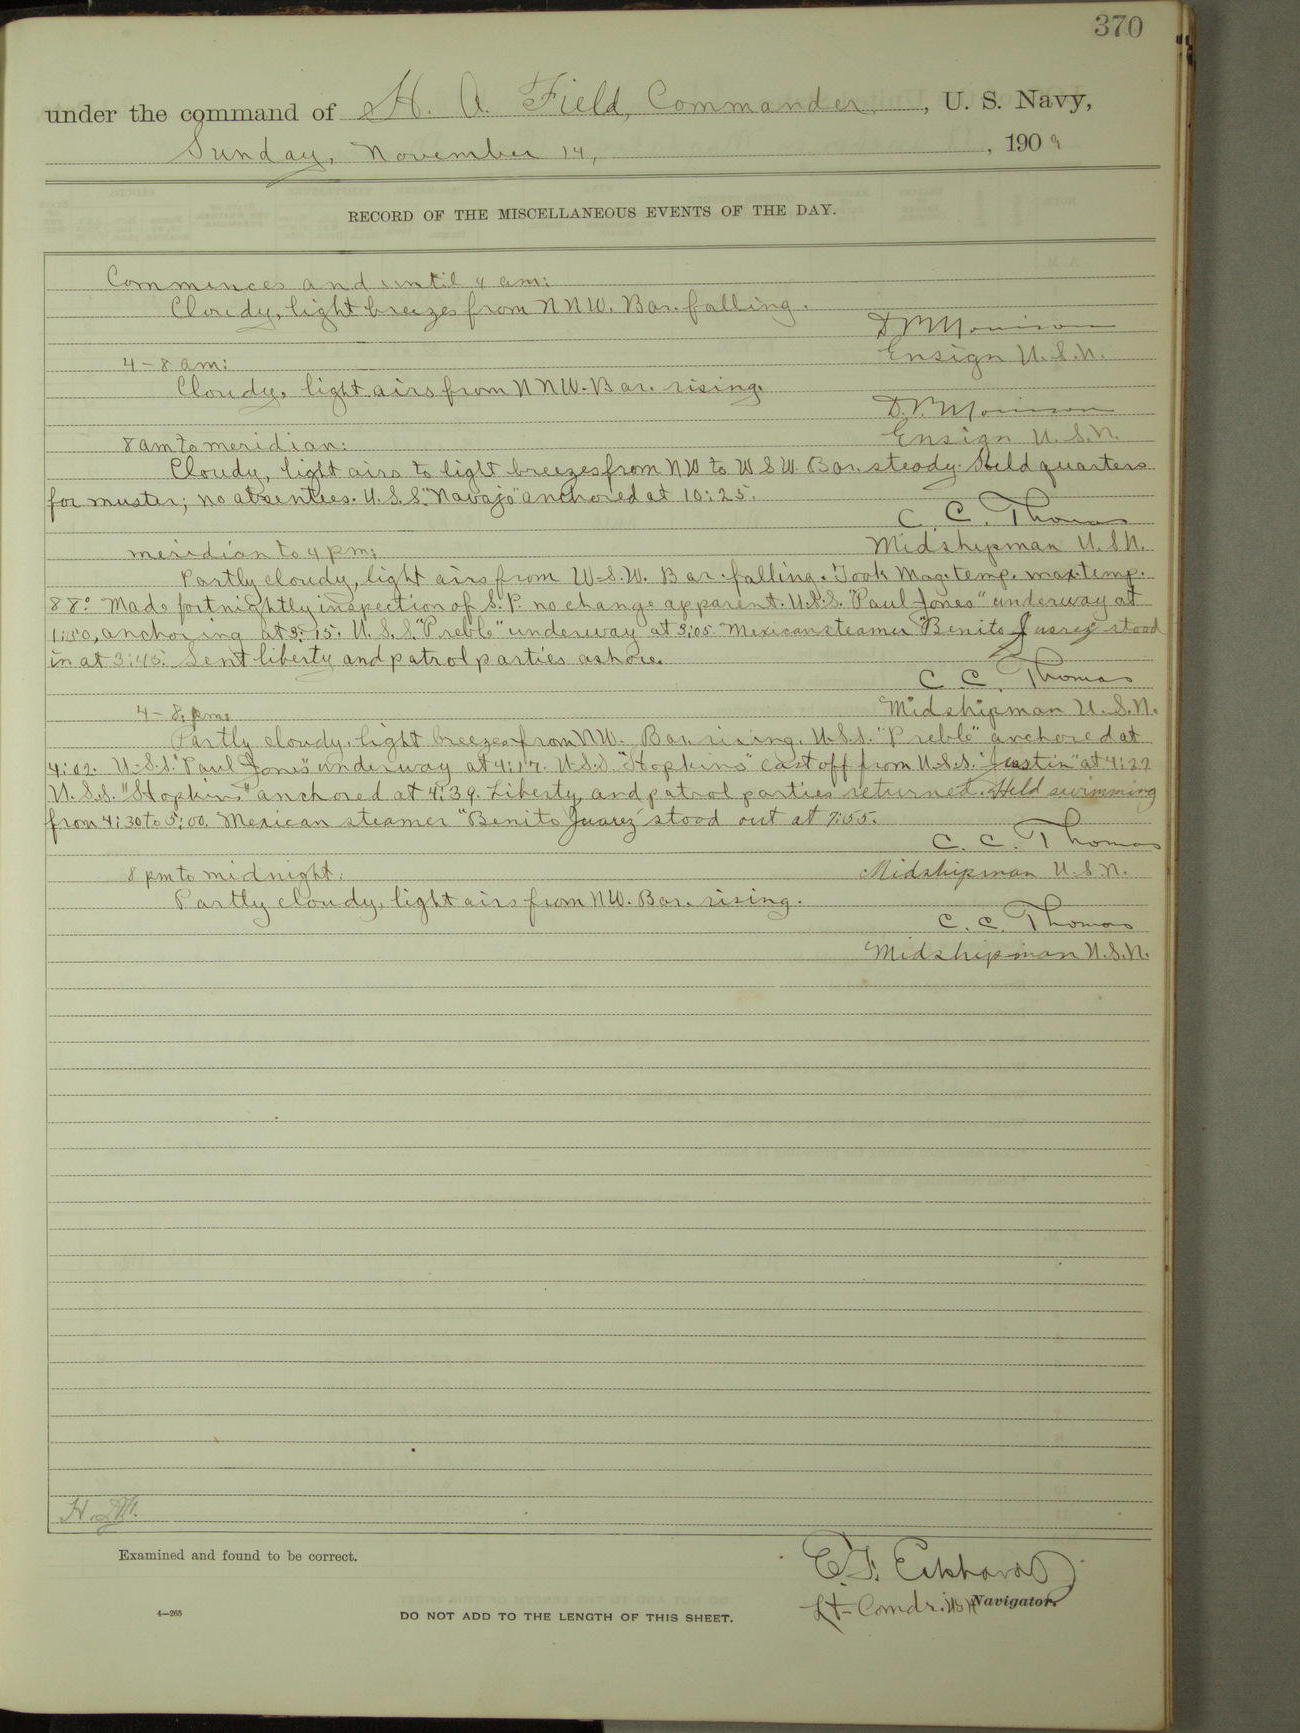 370
under the command of H. A. Field, Commander, U. S. Navy,
Sunday, November 14, , 1909
RECORD OF THE MISCELLANEOUS EVENTS OF THE DAY.
Commences and until 4 am:
Cloudy, light breezes from NNW. Bar. falling.
D M Morrison
Ensign U.S.N.
4 – 8 am:
Cloudy, light airs from NNW. Bar. rising.
Morrison
Ensign U.S.N.
8 am to meridian:
Cloudy, light airs to light breezes from NW to WSW. Bar. steady. Held quarters
for muster; no absentees. U.S.S. "Navajo" anchored at 10:25.
C. C. Thomas
Midshipman U.S.N.
meridian to 4 pm:
Partly cloudy, light airs from W.S.W. Bar. falling. Took Mag. temp. max. temp.
88° Made fortnightly inspection of S.P. no change apparent. U.S.S. "Paul Jones" underway at
1:50, anchoring at 3:15. U.S.S. "Preble" underway at 3:05. Mexican steamer "Benito Juarez" stood
in at 3:45. Sent liberty and patrol parties ashore.
C. C. Thomas
Midshipman U.S.N.
4 – 8 pm:
Partly cloudy, light breezes from NW. Bar. rising. U.S.S. "Preble" anchored at
4:02. U.S.S. "Paul Jones" underway at 4:17. U.S.S. "Hopkins" cast off from U.S.S. "Justin" at 4:22
U.S.S. "Hopkins" anchored at 4:39. Liberty and patrol parties returned. Held swimming
from 4:30 to 5:00. Mexican steamer "Benito Juarez" stood out at 7:55.
C. C. Thomas
Midshipman U.S.N.
8 pm to midnight:
Partly cloudy, light airs from NW. Bar. rising.
C. C. Thomas
Midshipman U.S.N.
Examined and found to be correct.
E. F. Eckhardt
Lt-Comdr. USN Navigator.
4—265
DO NOT ADD TO THE LENGTH OF THIS SHEET.